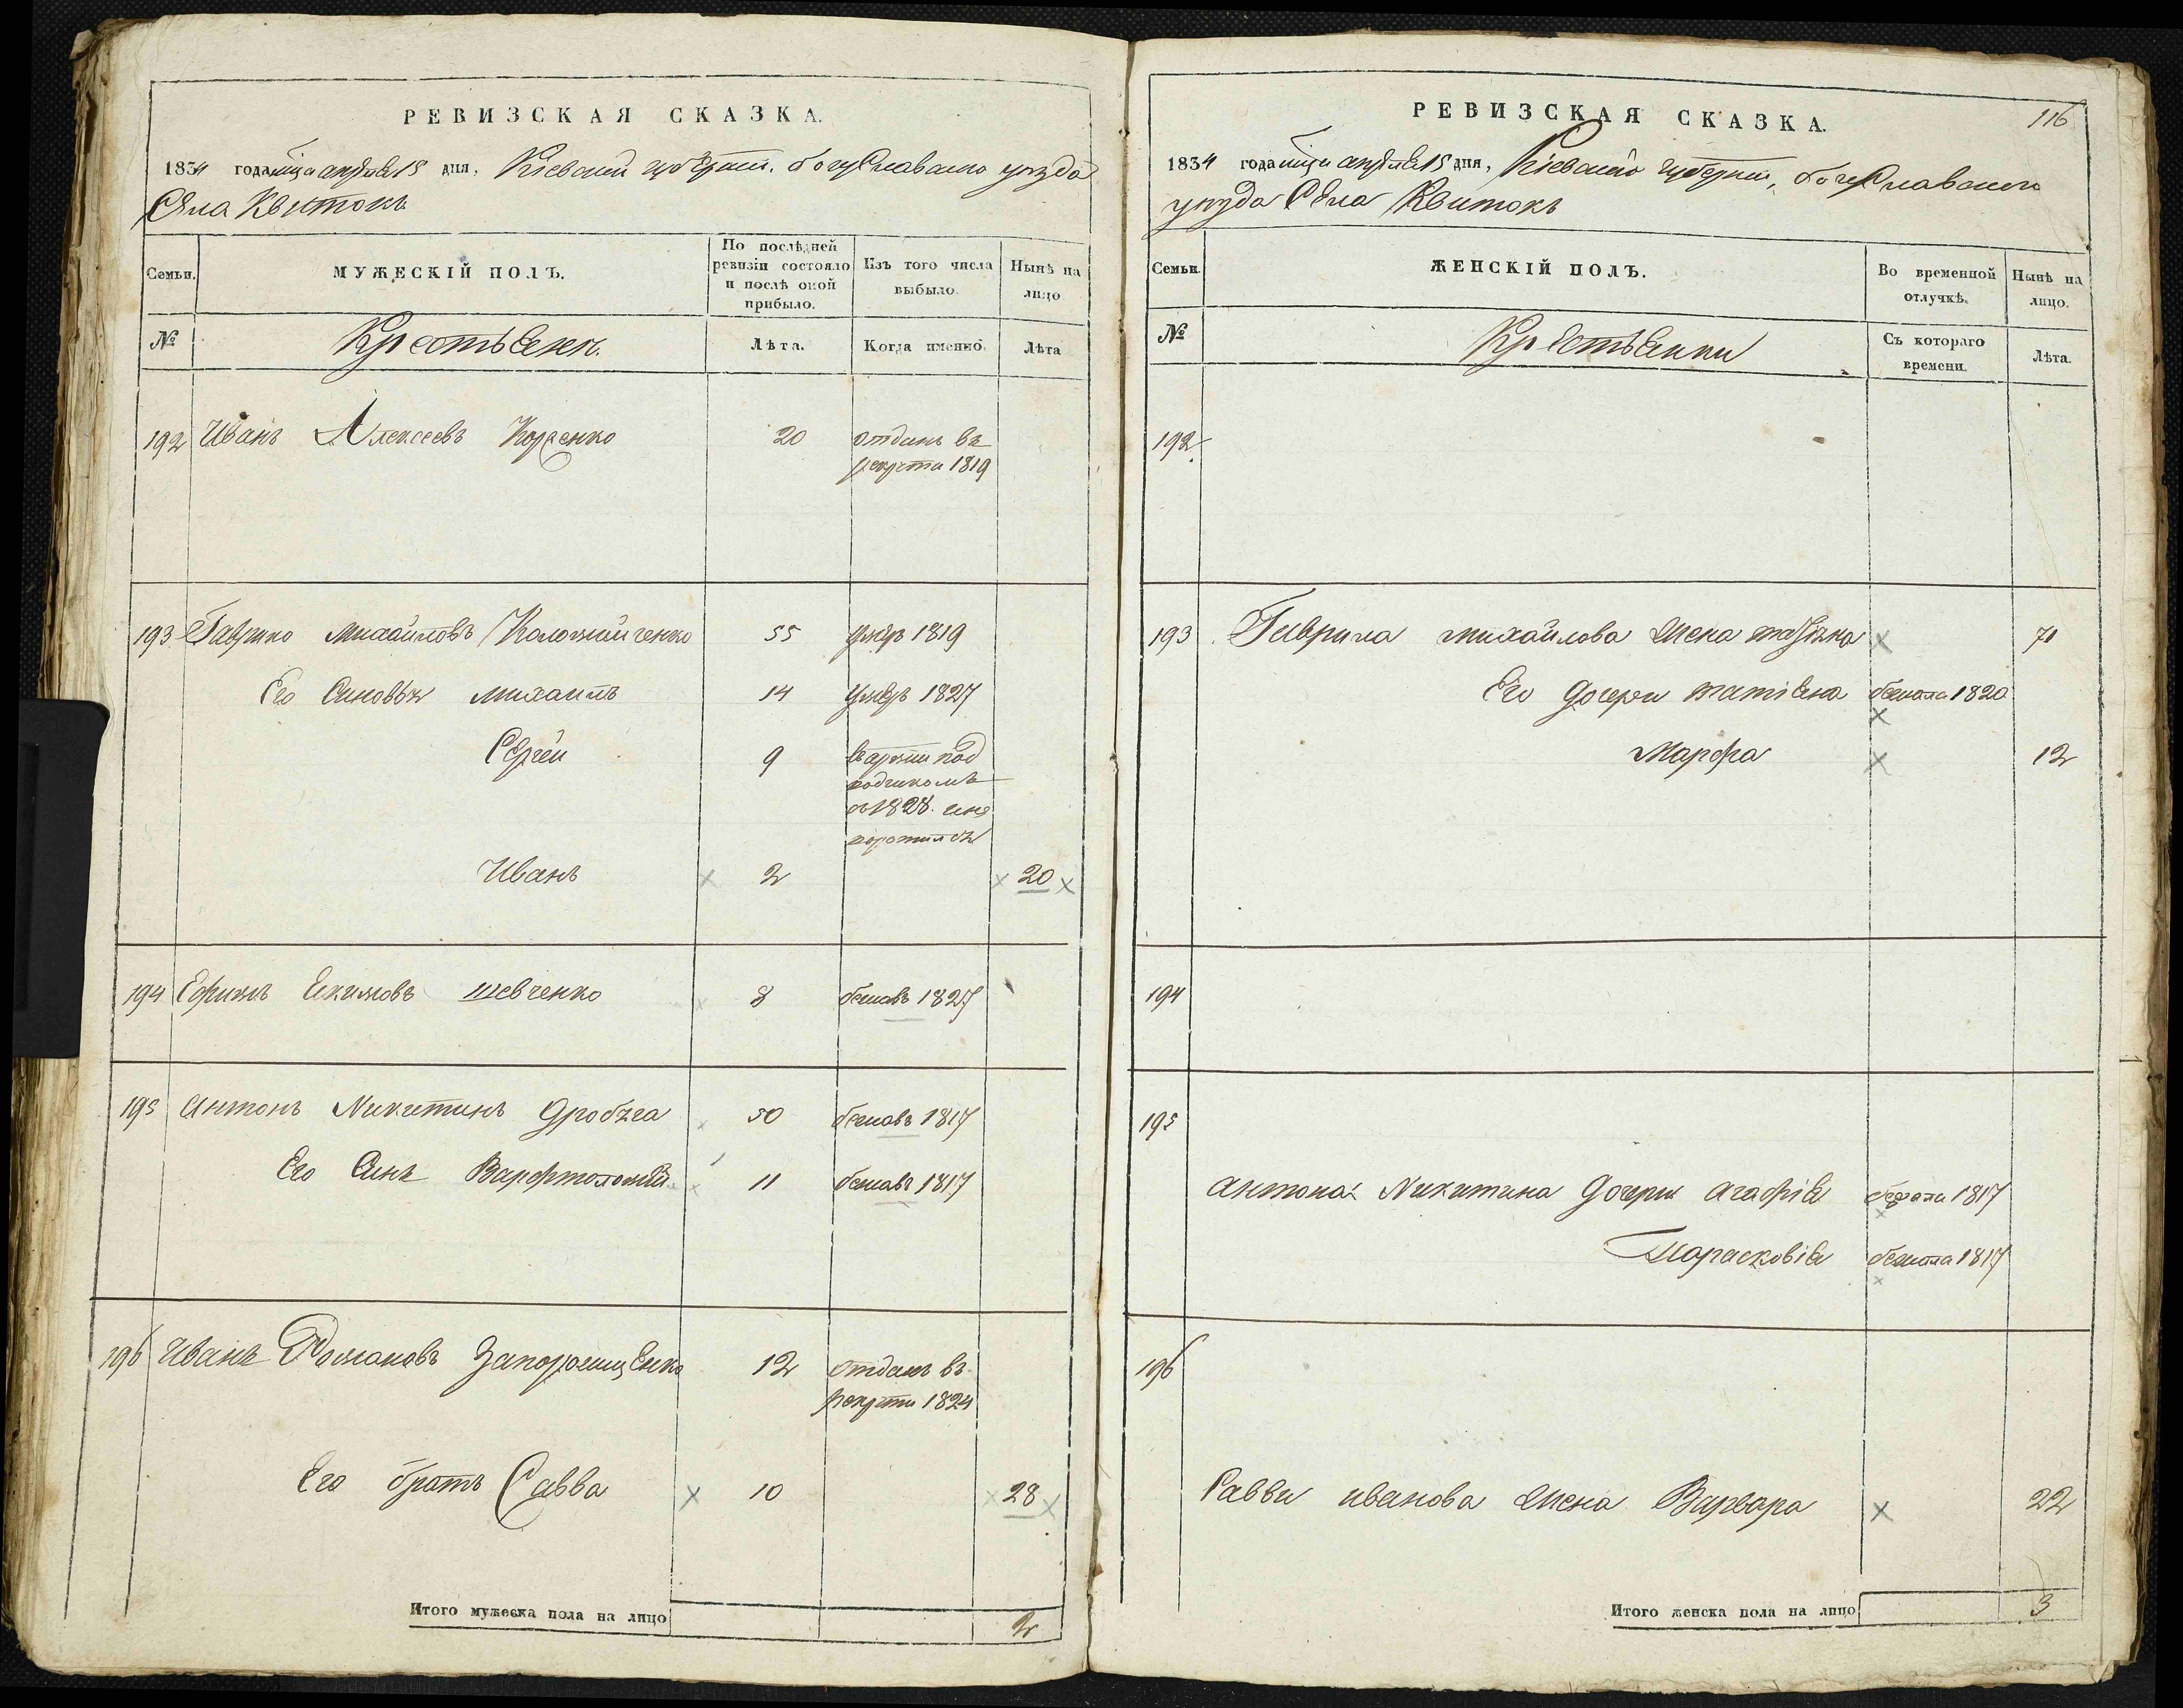 РЕВИЗСКАЯ СКАЗКА.
1834 года мца апреля 15 дня, Кіевской губерніи, богуславского уезда
Села Квитокъ
Семьи.
МУЖЕСКІЙ ПОЛЪ.
По послѣдней ревизіи состояло и послѣ оной прибыло.
Изъ того числа выбыло.
Нынѣ на лицо
№
Крестьяне.
Лѣта.
Когда именно.
Лѣта
192 Иванъ Алексеевъ 20 отданъ въ
рекрута 1819
193 Гаврило Михайловъ Коломийченко 55 умер 1819
Его Синовья михаилъ 14 умеръ 1827
Сергей 9
съ 1828
Иванъ 2 20
194 Ефимъ Екимовъ шевченко 8 бежавъ 1827
195 Антонъ Никитинъ Дробяга 50 бежавъ 1817
Его Синъ Варфтоломей 11 бежавъ 1817
196 Иванъ Романовъ Запорощенко 12 отданъ въ
рекрути 1824
Его братъ Савва 10 28
Итого мужеска пола на лицо 2
116
РЕВИЗСКАЯ СКАЗКА.
1834 года мца апреля 15 дня, Кіевской губерніи, богуславского
уезда Села Квитокъ
Семьи.
ЖЕНСКІЙ ПОЛЪ.
Во временной отлучкѣ.
Нынѣ на лицо.
№
Крестьянки
Съ котораго времени.
Лѣта.
192
193 Гаврила михайлова жена 71
Его дочери татіяна бежала 1820
Марфа 12
194
195
Антона Никитина дочери агафія бежала 1817
Парасковія бежала 1817
196
Савви иванова жена Варвара 22
Итого женска пола на лицо 3